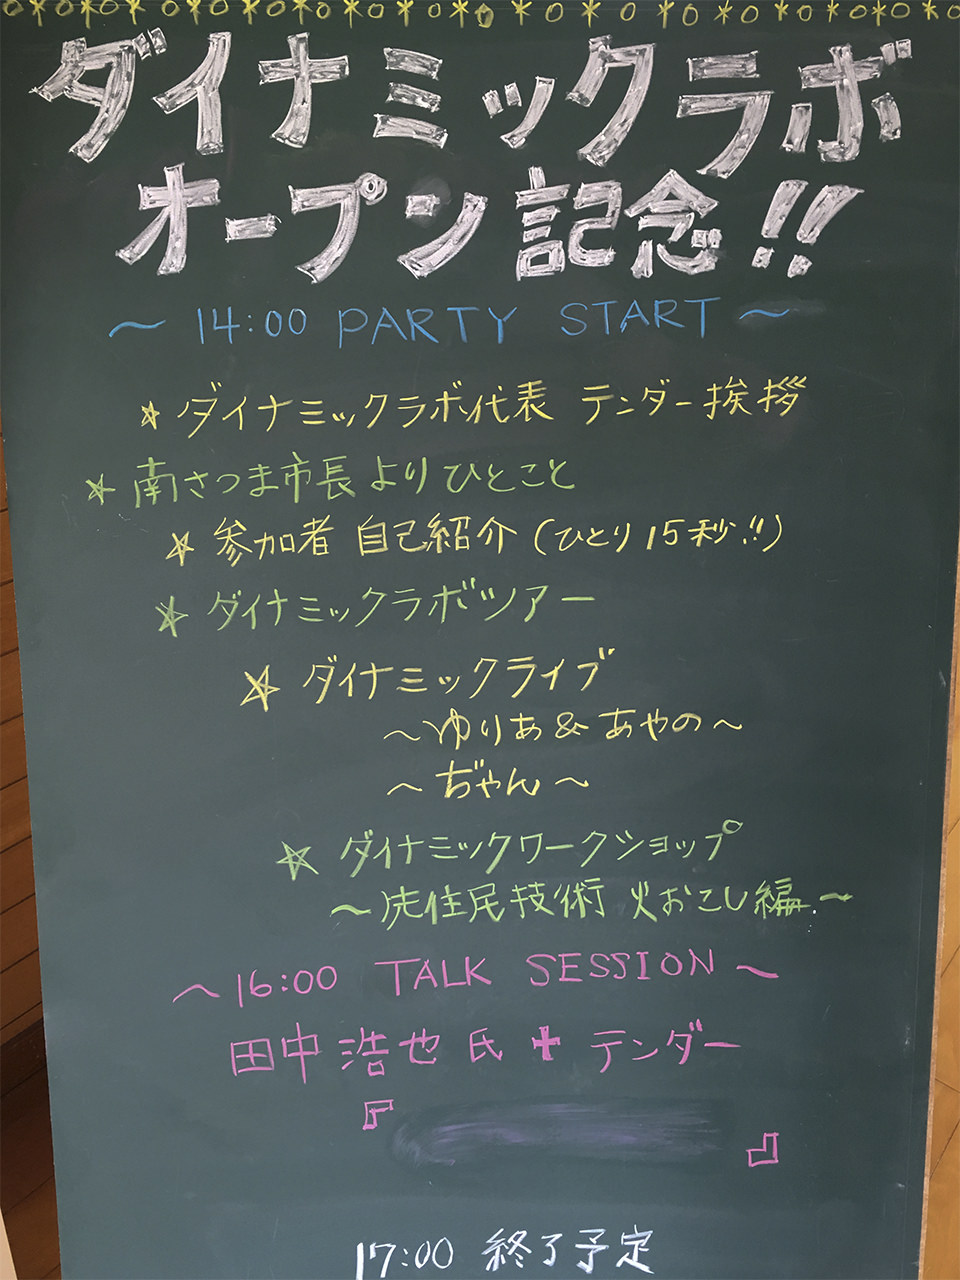 ダイナミックラボ
オープン記念!!
～ 14:00 PARTY START ～
☆ ダイナミックラボ代表 テンダー挨拶
☆ 南さつま市長よりひとこと
☆ 参加者 自己紹介 (ひとり15秒!!)
☆ ダイナミックラボツアー
☆ ダイナミックライブ
～ゆりあ&あやの～
～ぢゃん～
☆ ダイナミックワークショップ
～先住民技術 火おこし編～
～16:00 TALK SESSION～
田中浩也氏 + テンダー
『 』
17:00 終了予定